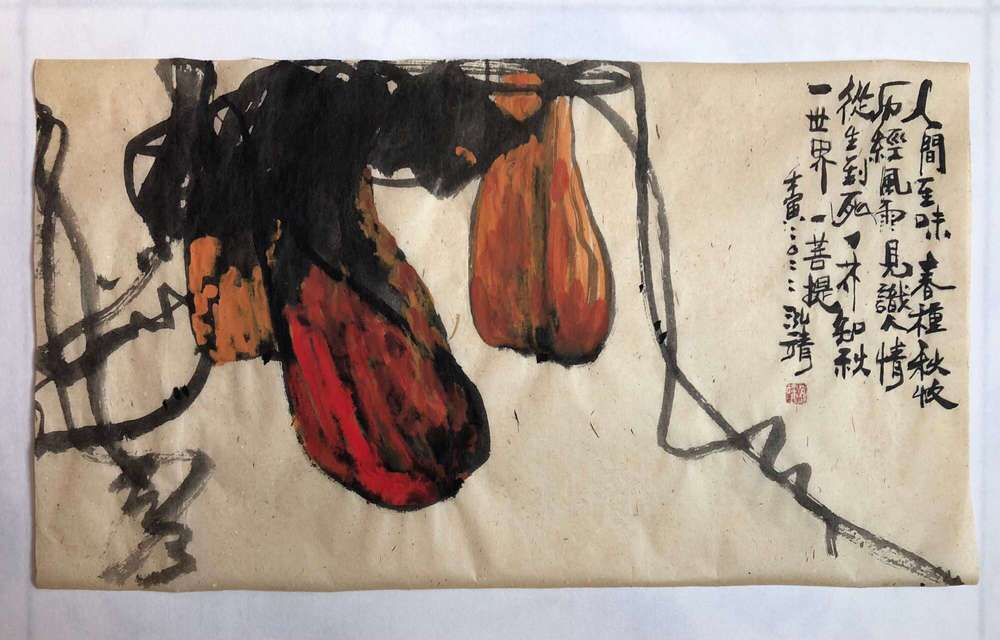 人間至味 春種秋收
历經風雨見識人情
從生到死一 知秋
一世界 一菩提
壬寅二〇二二